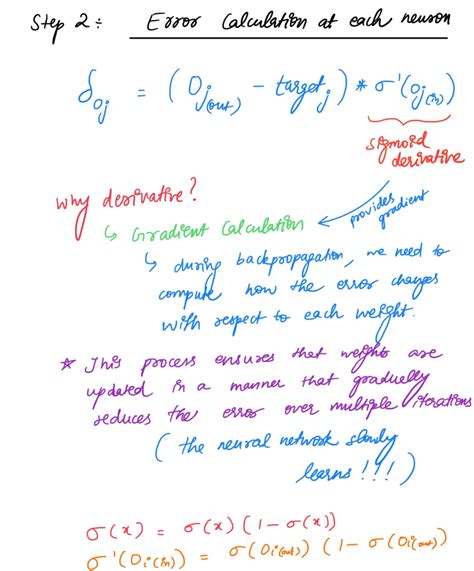 Step 2: Error Calculation at each neuron
δ_oj = (O_j(out) - target_j) * σ'(O_j(in))
sigmoid
derivative
why derivative?
provides
gradient
↳ Gradient Calculation
↳ during backpropagation, we need to
compute how the error changes
with respect to each weight.
* This process ensures that weights are
updated in a manner that gradually
reduces the error over multiple iterations
( the neural network slowly
learns !!! )
σ(x) = σ(x) (1 - σ(x))
σ'(O_i(in)) = σ(O_i(out)) (1 - σ(O_i(out))